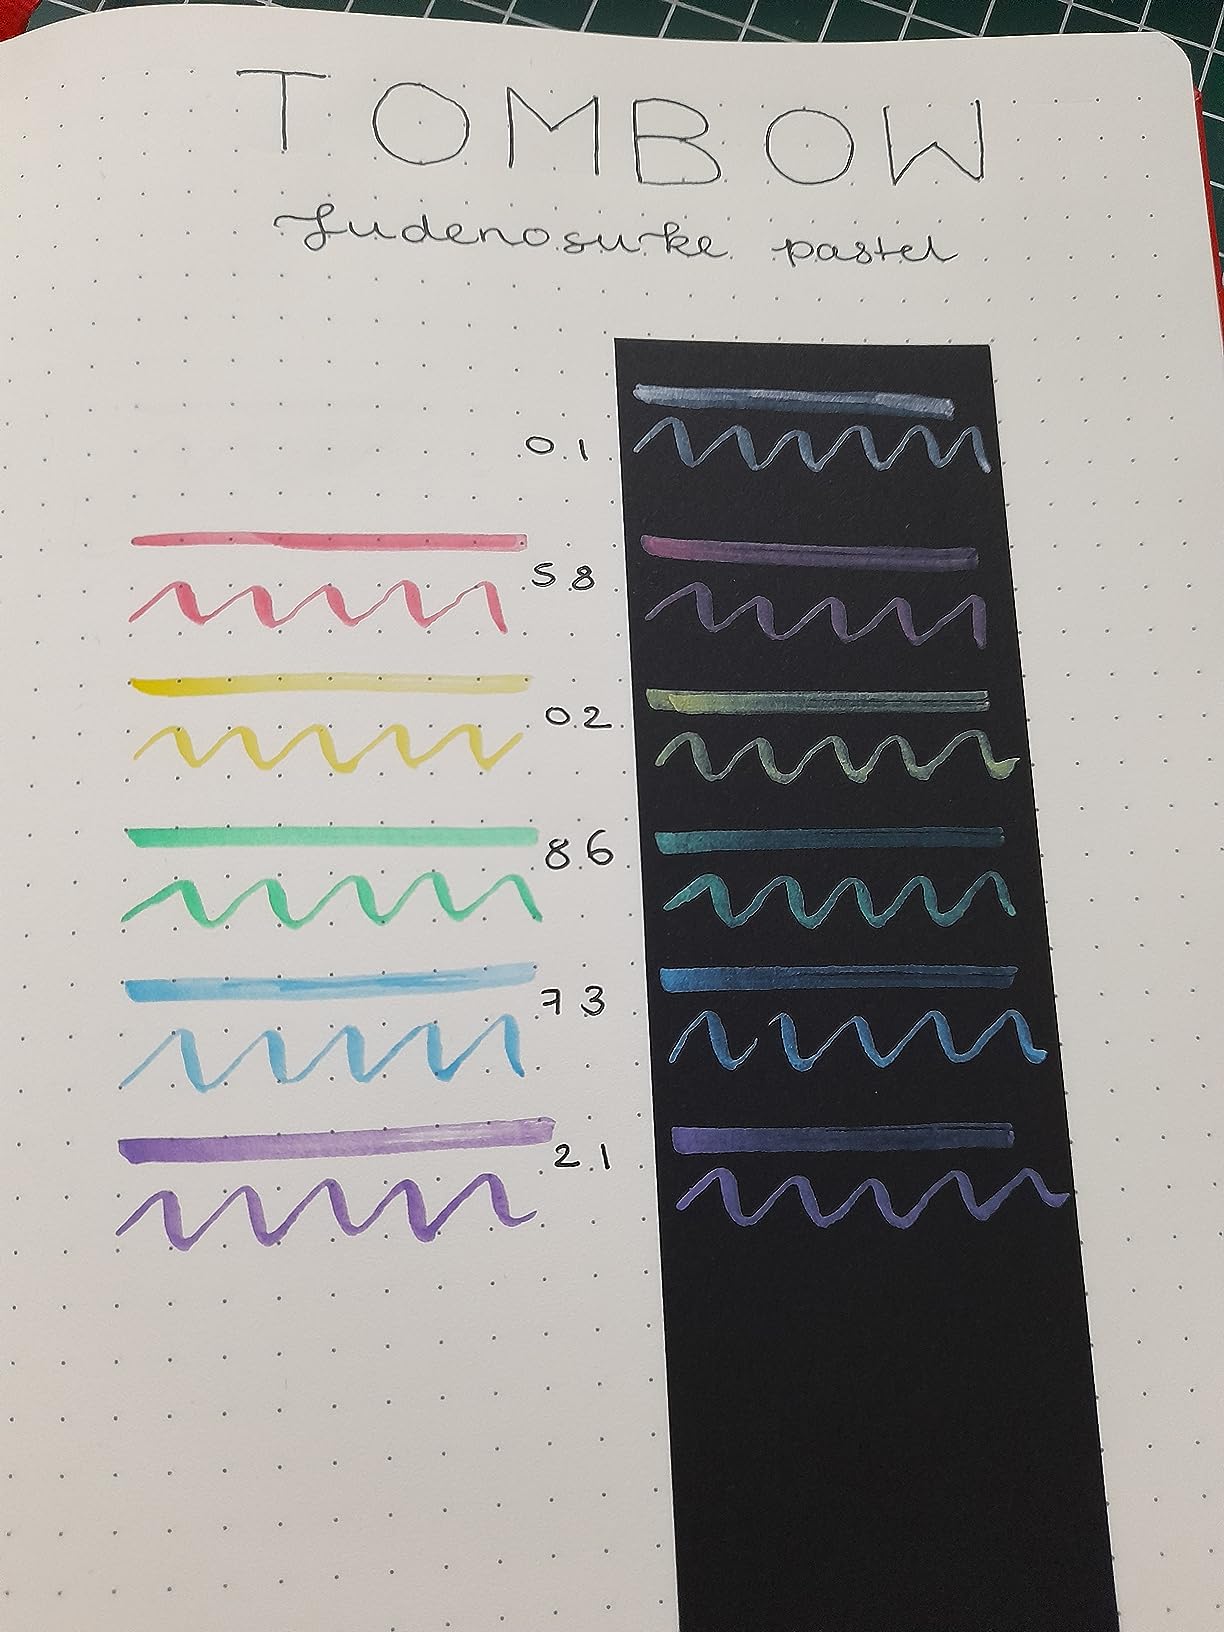 TOMBOW
Fudenosuke pastel
01
58
02
86
73
21